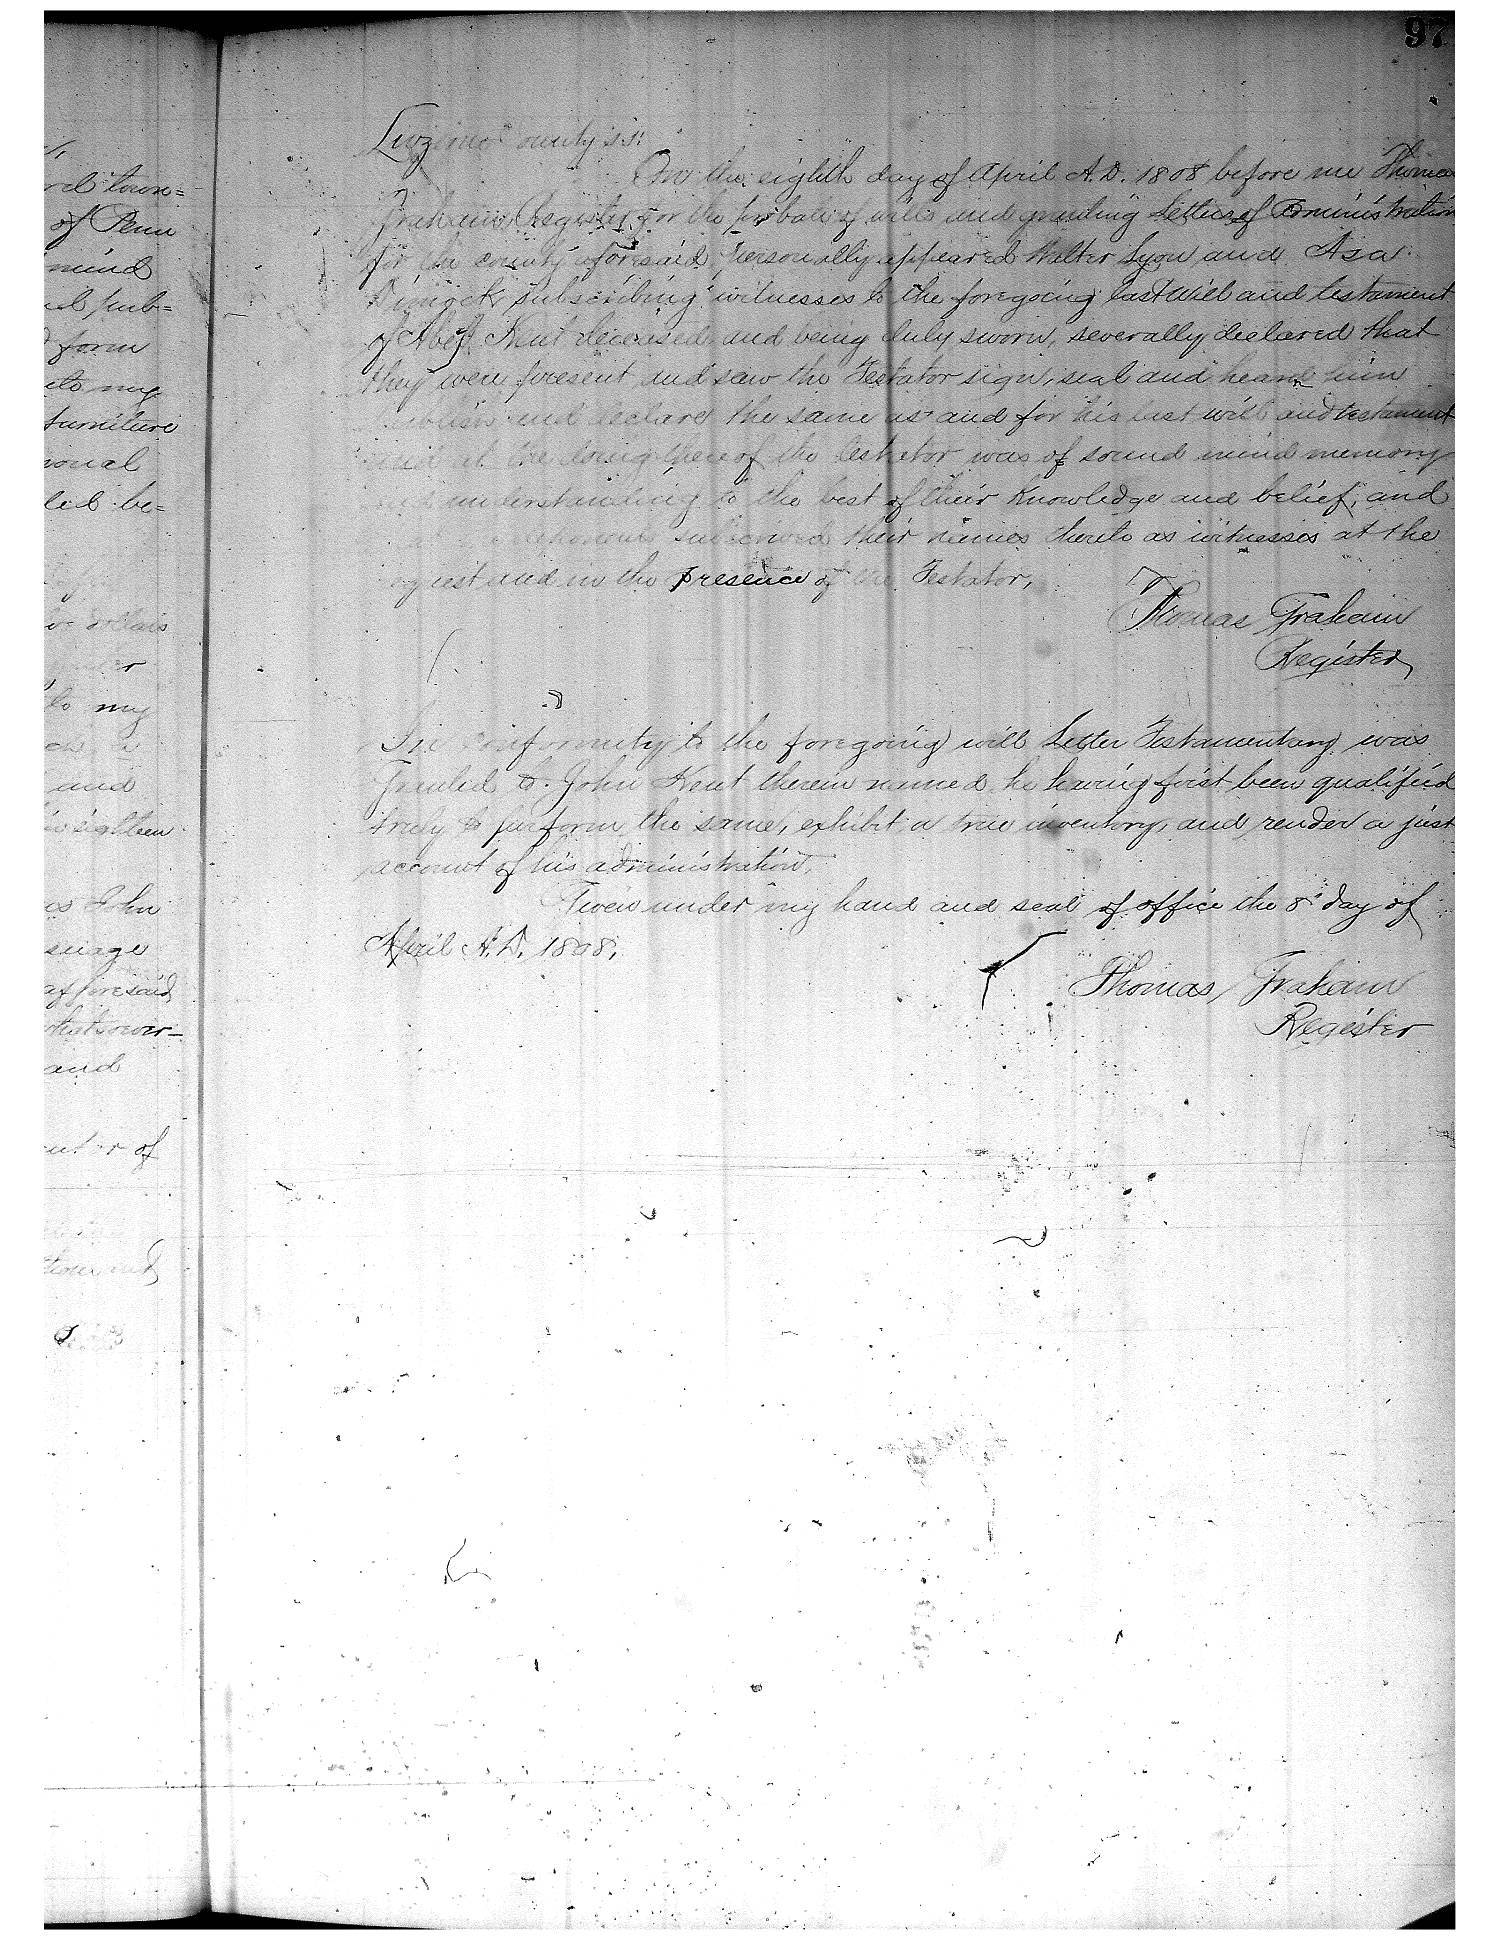 97
Luzerne County ss:
On the eighth day of April A.D. 1808 before me Thomas
Graham Register for the probate of wills and granting Letters of Administration
for the county aforesaid personally appeared Walter Lyon and Asa
Dimock subscribing witnesses to the foregoing last Will and testament
of Abel Kent deceased and being duly sworn, severally declared that
they were present and saw the Testator sign, seal and heard him
publish and declare the same as and for his last will and testament
and at the doing thereof the testator was of sound mind memory
and understanding to the best of their knowledge and belief, and
subscribed their names thereto as witnesses at the
request and in the presence of the Testator,
Thomas Graham
Register
In conformity to the foregoing will Letter Testamentary was
Granted to John Kent therein named he having first been qualified
truly to perform the same, exhibit a true inventory, and render a just
account of his administration.
Given under my hand and seal of office the 8 day of
April A.D. 1808,
Thomas Graham
Register
of Penn
mind
form
to my
furniture
be=
dollars
to my
and
eighteen
John
aforesaid
and
of